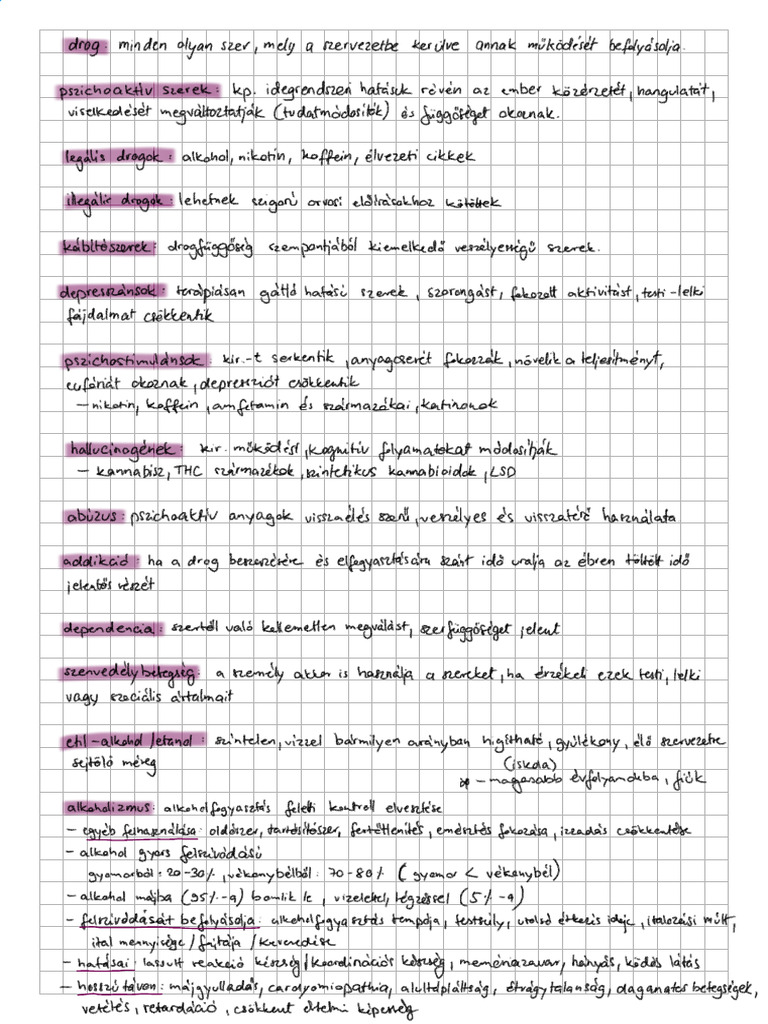 drog: minden olyan szer, mely a szervezetbe kerülve annak működését befolyásolja.
pszichoaktív szerek: kp. idegrendszeri hatásuk révén az ember közérzetét, hangulatát,
viselkedését megváltoztatják (tudatmódosítók) és függőséget okoznak.
legális drogok: alkohol, nikotin, koffein, élvezeti cikkek
illegális drogok: lehetnek szigorú orvosi előírásokhoz kötöttek
kábítószerek: drogfüggőség szempontjából kiemelkedő veszélyességű szerek.
depresszánsok: terápiásan gátló hatású szerek, szorongást, fokozott aktivitást, testi-lelki
fájdalmat csökkentik
pszichostimulánsok: kir.-t serkentik, anyagcserét fokozzák, növelik a teljesítményt,
eufóriát okoznak, depressziót csökkentik
- nikotin, koffein, amfetamin és származékai, katinonok
hallucinogének: kir. működést, kognitív folyamatokat módosítják
- kannabisz, THC származékok, szintetikus kannabioidok, LSD
abúzus: pszichoaktív anyagok visszaélés szerű, veszélyes és visszatérő használata
addikció: ha a drog beszerzésére és elfogyasztására szánt idő uralja az ébren töltött idő
jelentős részét
dependencia: szertől való kellemetlen megválást, szerfüggőséget jelent
szenvedélybetegség: a személy akkor is használja a szereket, ha érzékeli ezek testi, lelki
vagy szociális ártalmait
etil-alkohol/etanol: színtelen, vízzel bármilyen arányban hígítható, gyúlékony, élő szervezetre
sejtölő méreg
(iskola)
- magasabb évfolyamokba, fiúk
alkoholizmus: alkoholfogyasztás feletti kontroll elvesztése
- egyéb felhasználása: oldószer, tartósítószer, fertőtlenítés, emésztés fokozása, izzadás csökkentése
- alkohol gyors felszívódású
gyomorból: 20-30%, vékonybélből: 70-80% (gyomor < vékonybél)
- alkohol májba (95%-a) bomlik le, vizelettel, légzéssel (5%-a)
- felszívódását befolyásolja: alkoholfogyasztás tempója, testsúly, utolsó étkezés ideje, italozási múlt,
ital mennyisége/fajtája/keveredése
- hatásai: lassult reakció készség/koordinációs készség, memóriazavar, hányás, ködös látás
- hosszú távon: májgyulladás, cardyomiopathia, alultápláltság, étvágytalanság, daganatos betegségek,
vetélés, retardáció, csökkent értelmi képesség